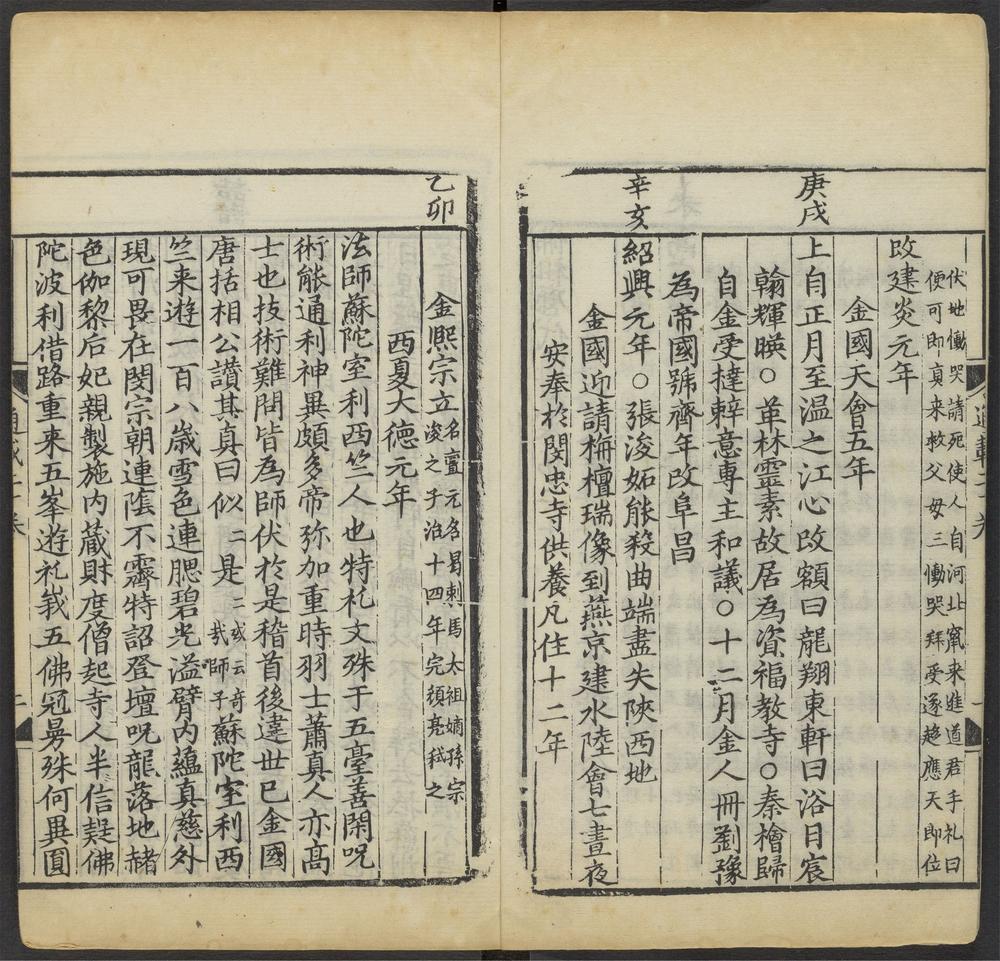 伏地慟哭請死使人自河北竄来進道君手札曰
便可即真来救父母三慟哭拜受遂趋應天即位
改建炎元年
金國天會五年
庚戌
上自正月至温之江心改額曰龍翔東軒曰浴日宸
翰輝暎○革林靈素故居為資福教寺○秦檜歸
自金受撻辢意專主和議○十二月金人冊劉豫
為帝國號齊年改阜昌
辛亥
紹興元年○張浚妬能殺曲端盡失陝西地
金國迎請栴檀瑞像到燕京建水陸會七晝夜
安奉於閔忠寺供養凡住十二年
乙卯
金熈宗立名亶元名曷剌馬太祖嫡孫宗
浚之子治十四年完顔亮弒之
西夏大德元年
法師蘇陀室利西竺人也特礼文殊于五臺善閑呪
術能通利神異頗多帝弥加重時羽士蕭真人亦高
士也技術難問皆為師伏於是稽首後違世已金國
唐括相公讃其真曰似二是二或云奇哉師子蘇陀室利西
竺来遊一百八歳雪色連腮碧光溢臂内蘊真慈外
現可畏在閔宗朝連隂不霽特詔登壇呪龍落地赭
色伽黎后妃親製施内蔵財度僧起寺人半信疑佛
陀波利借路重来五峯遊礼峩五佛冠曼殊何異圓